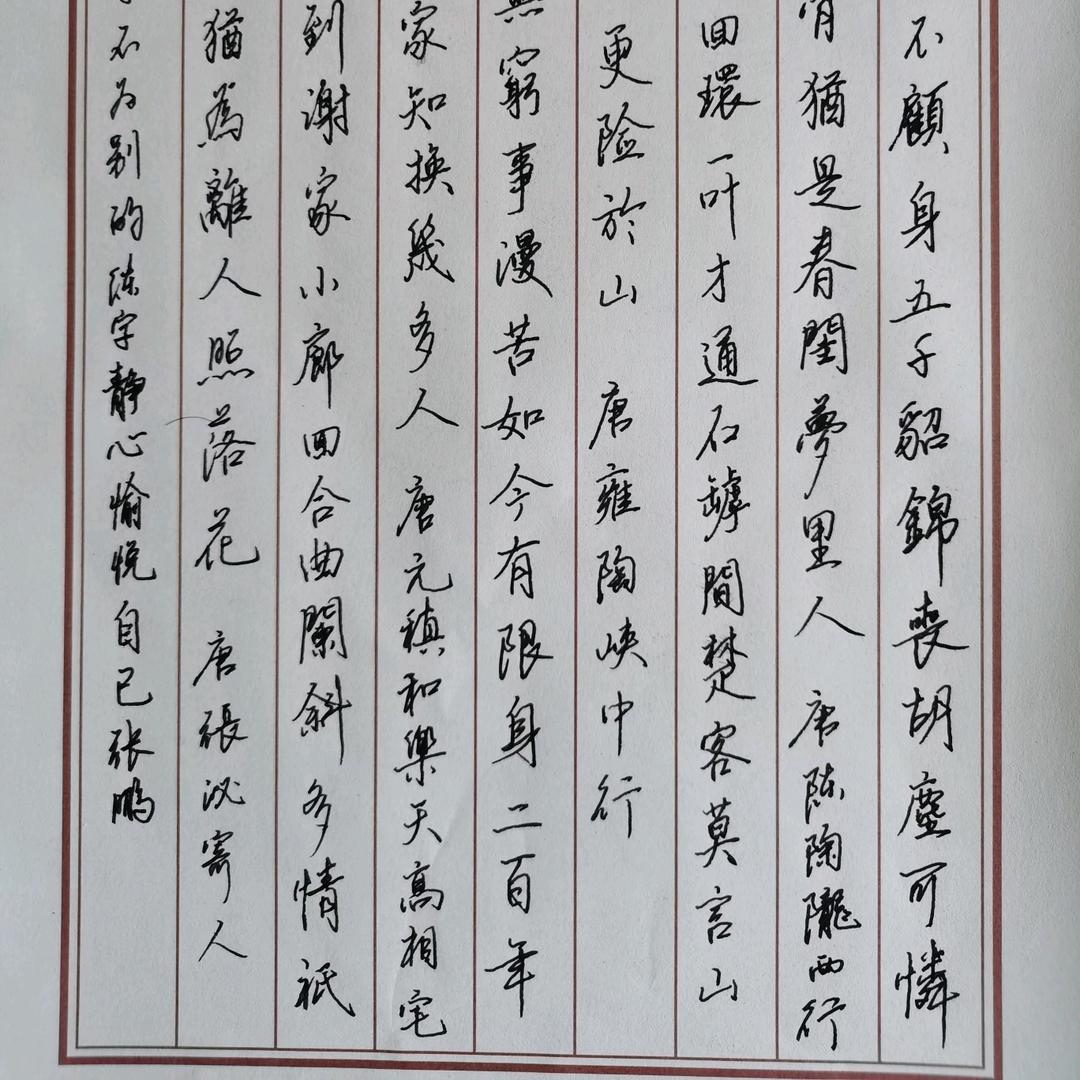 不顧身五千貂錦喪胡塵可憐
猶是春閨夢里人 唐陈陶隴西行
回環一叶才通石罅間楚客莫言山
更险於山 唐雍陶峡中行
無窮事漫苦如今有限身二百年
家知换幾多人 唐元稹和樂天高相宅
到谢家小廊回合曲闌斜多情祇
猶為離人照落花 唐張泌寄人
不为别的练字静心愉悦自己张鹏